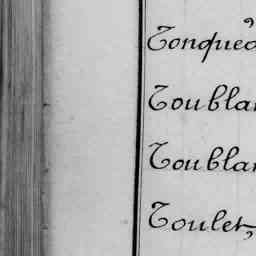 Tonqued
Toublan
Toublan
Toulet,